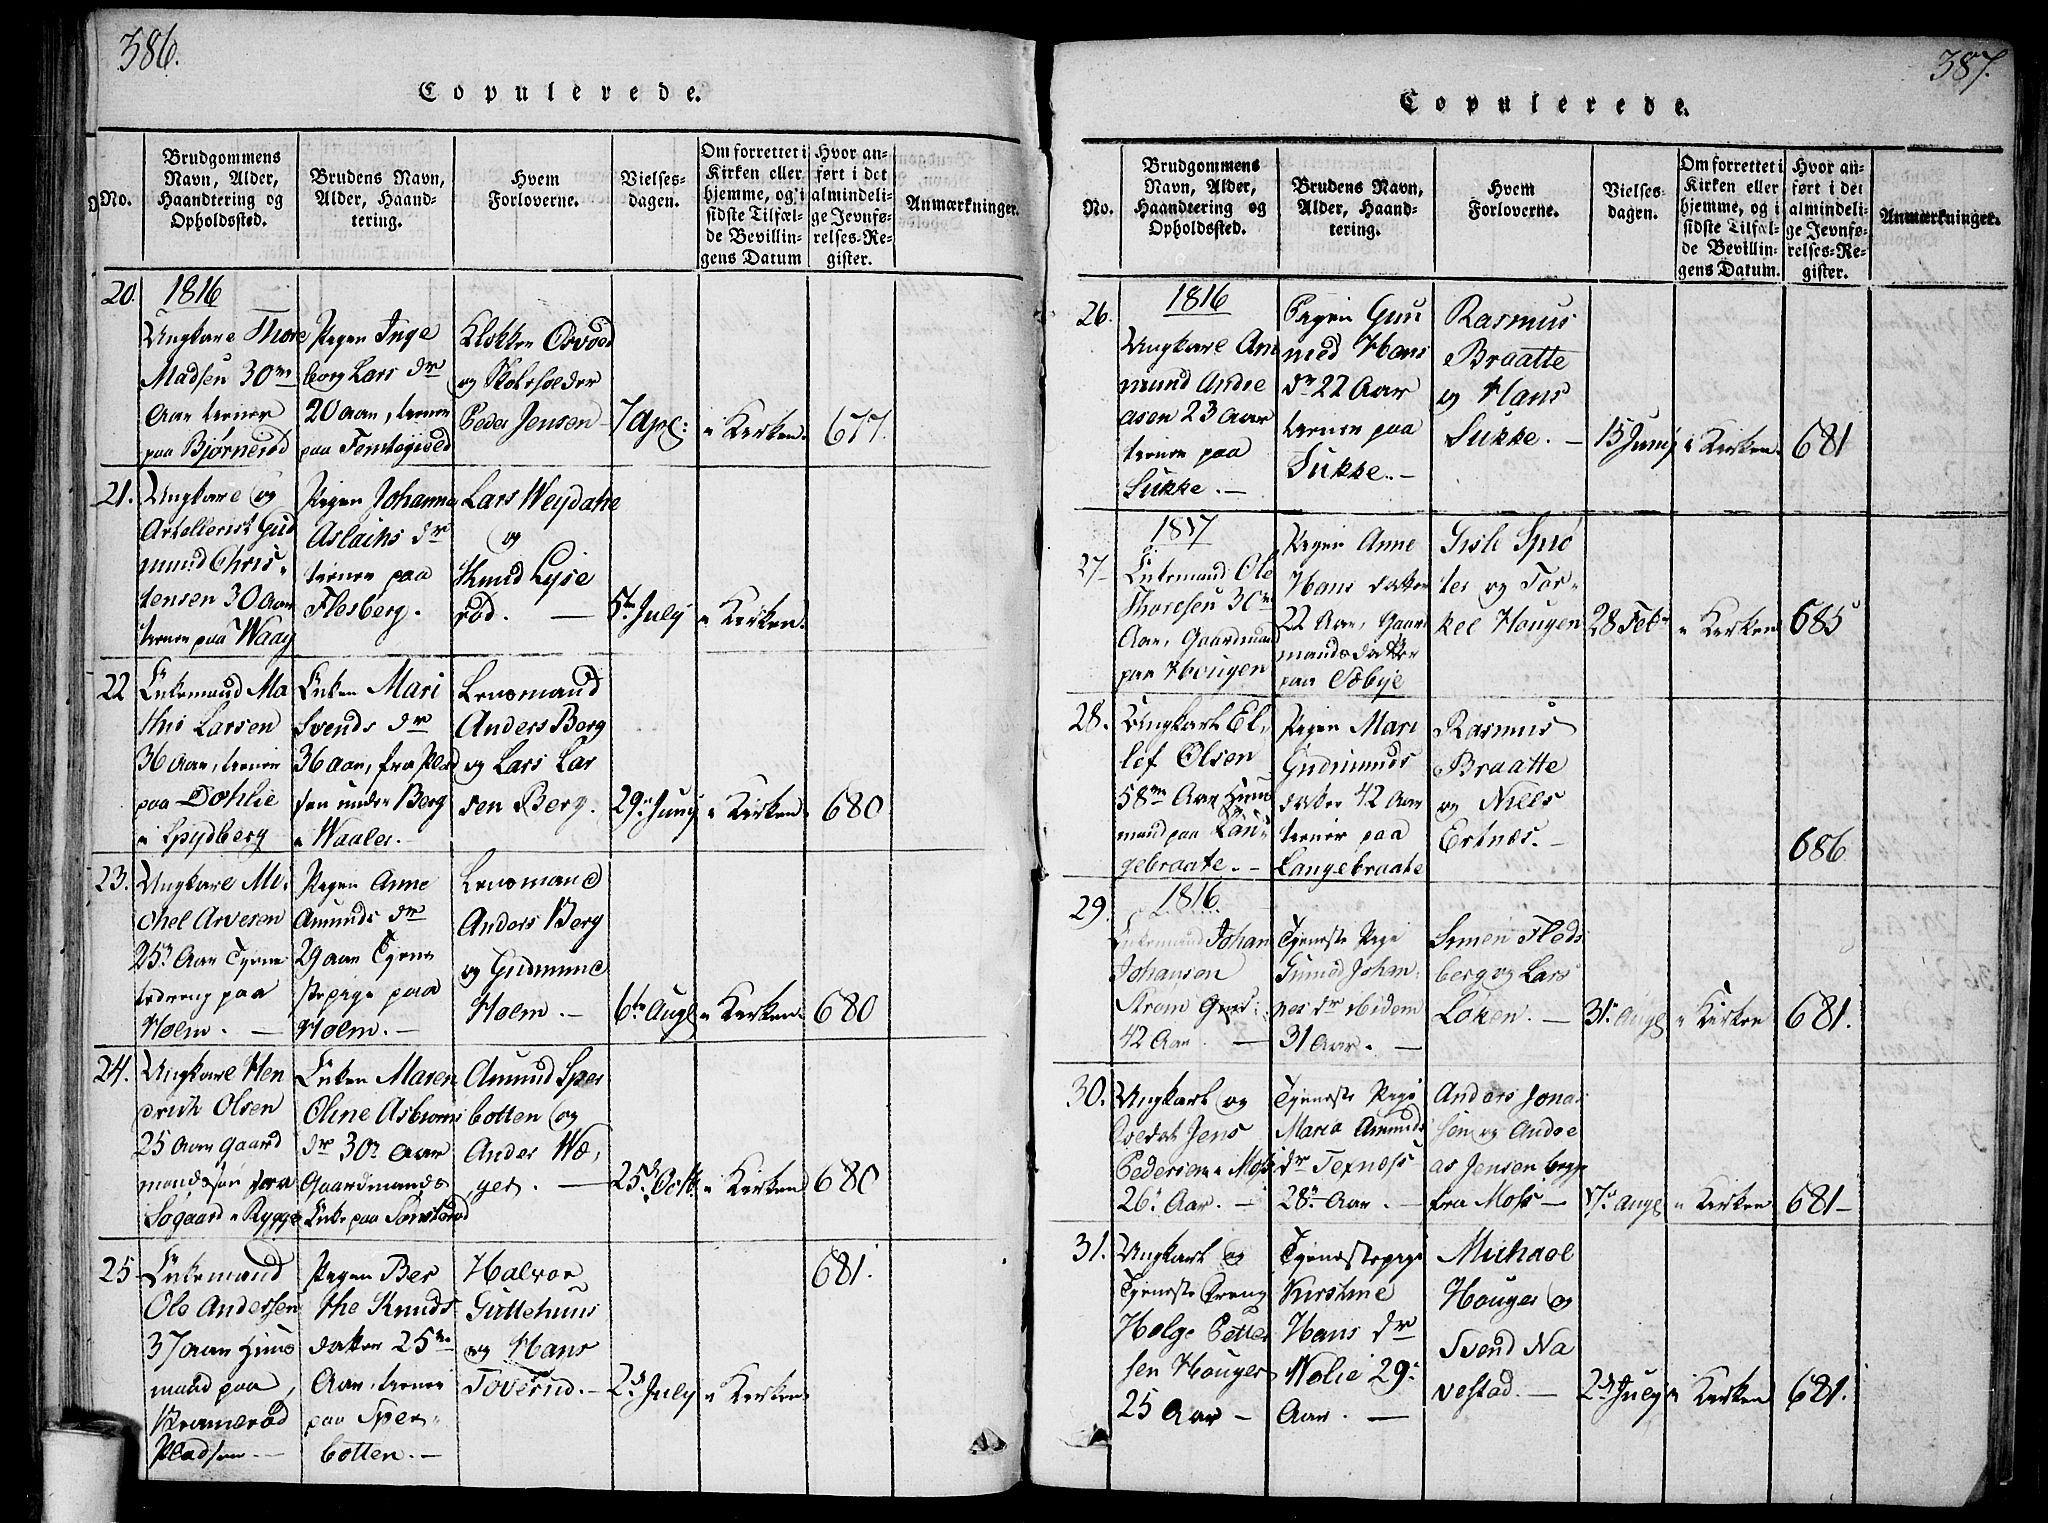 386.
Copulerede.
No.
Brudgommens
Navn, Alder,
Haandtering og
Opholdssted.
Brudens Navn,
Alder, Haand-
tering.
Hvem
Forloverne.
Vielses-
dagen.
Om forrettet i
Kirken eller
hjemme, og i
sidste Tilfæl-
de Bevillin-
gens Datum
Hvor an-
ført i det
almindeli-
ge Jevnfø-
relses-Re-
gister.
Anmærkninger.
20.
1816
Ungkarl Thore
Madsen 30
Aar
paa Bjørnerød
Pigen Inge
borg Lars dr
20 aar,
paa
Klokker
og
Peder Jensen
7 Apl:
i Kirken.
677.
21.
Ungkarl og
Artellerist Gud
mund Chris-
tensen 30 Aar
tiener paa Waag
Pigen Johanne
Aslachs dr
tiener paa
Flesberg.
Lars Weydahl
og
Knud Lyse
rød. —
5te July
i Kirken.
22
Enkemand Ma
this Larsen
36 Aar, tiener
paa Dohlie
i Spydberg
Enken Mari
Svends dr
36 aar, fra Plad
sen under Berg
i Waaler. —
Lensmand
Anders Berg
og Lars Lar
sen Berg.
29. Juny
i Kirken.
680
23.
Ungkarl Mi-
chel Arvesen
25 Aar Tjene
stedreng paa
Holm. —
Pigen Anne
Amunds dr
29 aar Tjene
stepige paa
Holm. —
Lensmand
Anders Berg
og Gudmund
Holm. —
6te Augs
i Kirken.
680
24.
Ungkarl Hen
drich Olsen
25 Aar Gaard
mandssøn fra
Søgaard i Rygge
Enken Maren
Oline Asbiørns
dr 30 Aar
Gaardmands
Enke paa
Amund Sper
botten og
Anders Wæ-
ger. —
25de Octb
i Kirken
680
25
Enkemand
Ole Andersen
37 Aar Huus
mand paa
Kramerød
Pladsen —
Pigen Ber
the Knuds
datter 25
Aar, tiener
paa Sper-
botten. —
Halvor
Guttehuus
og Hans
Toverud. —
2d July
i Kirken
681.
387.
Copulerede.
No.
Brudgommens
Navn, Alder,
Haandtering og
Opholdssted.
Brudens Navn,
Alder, Haand-
tering.
Hvem
Forloverne.
Vielses-
dagen.
Om forrettet i
Kirken eller
hjemme, og i
sidste Tilfæl-
de Bevillin-
gens Datum.
Hvor an-
ført i det
almindeli-
ge Jevnfø-
relses-Re-
gister.
Anmærkninger.
26.
1816
Ungkarl Am
mund Andre
asen 23 Aar
tiener paa
Sukke. —
Pigen Gun
med Hans
dr 22 Aar
tiener paa
Sukke. —
Rasmus
Braatte
og Hans
Sukke. —
15 Juny
i Kirken.
681
27
1817
Enkemand Ole
Thoresen 30
Aar, Gaardmand
paa Hougen
Pigen Anne
Hans datter
22 Aar, Gaard
mandsdatter
paa Sæbye
Gisle Sprø
ter og Tor-
kel Hougen
28 Feb
i Kirken
685
28.
Ungkarl El-
lef Olsen
58 Aar Huus
mand paa Lan-
gebraate. —
Pigen Mari
Gudmunds
datter 42 Aar
tiener paa
Langebraate
Rasmus
Braatte
og Niels
Ertnæs. —
686
29.
1816
Enkemand Johan
Johansen
Strøm
42 Aar. —
Tjeneste Pige
Gunild Johan-
nes dr ibidem
31 Aar. —
Simen Fleds
berg og Lars
Løken. —
31. Augs
i Kirken
681.
30.
Ungkarl og
Soldat Jens
Pedersen i Moss
26 Aar. —
Tjeneste Pige
Maria Amunds
dr Texness
28 Aar. —
Anders Jona
sen og Andre
as Jensen begge
fra Moss —
17. Augs
i Kirken
681 —
31.
Ungkarl og
Tjeneste Dreng
Helge Petter
sen Houger
25 Aar —
Tjenestepige
Kirstine
Hans dr
Wolie 29
Aar. —
Michael
Houger og
Svend Na
vestad. —
2d July
i Kirken
681.